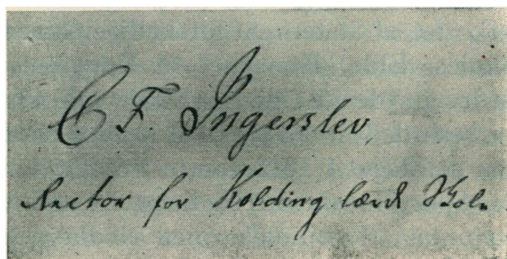 C. F. Ingerslev,
Rector for Kolding lærde Skole